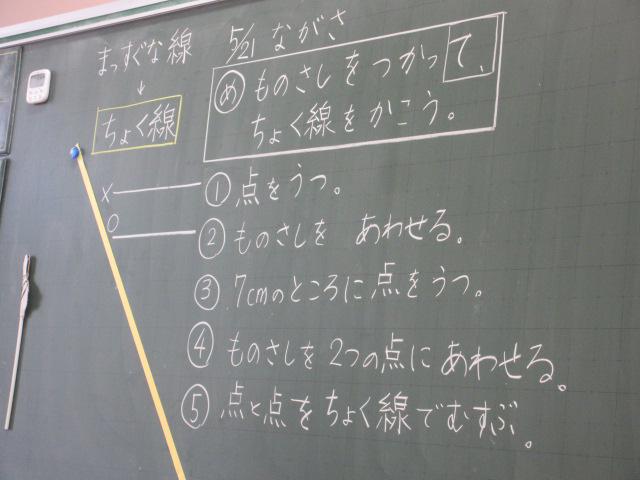 5/21 ながさ
まっすぐな線
↓
ちょく線
め ものさしをつかって、
ちょく線をかこう。
×
○
① 点をうつ。
② ものさしを あわせる。
③ 7cmのところに点をうつ。
④ ものさしを2つの点にあわせる。
⑤ 点と点をちょく線でむすぶ。